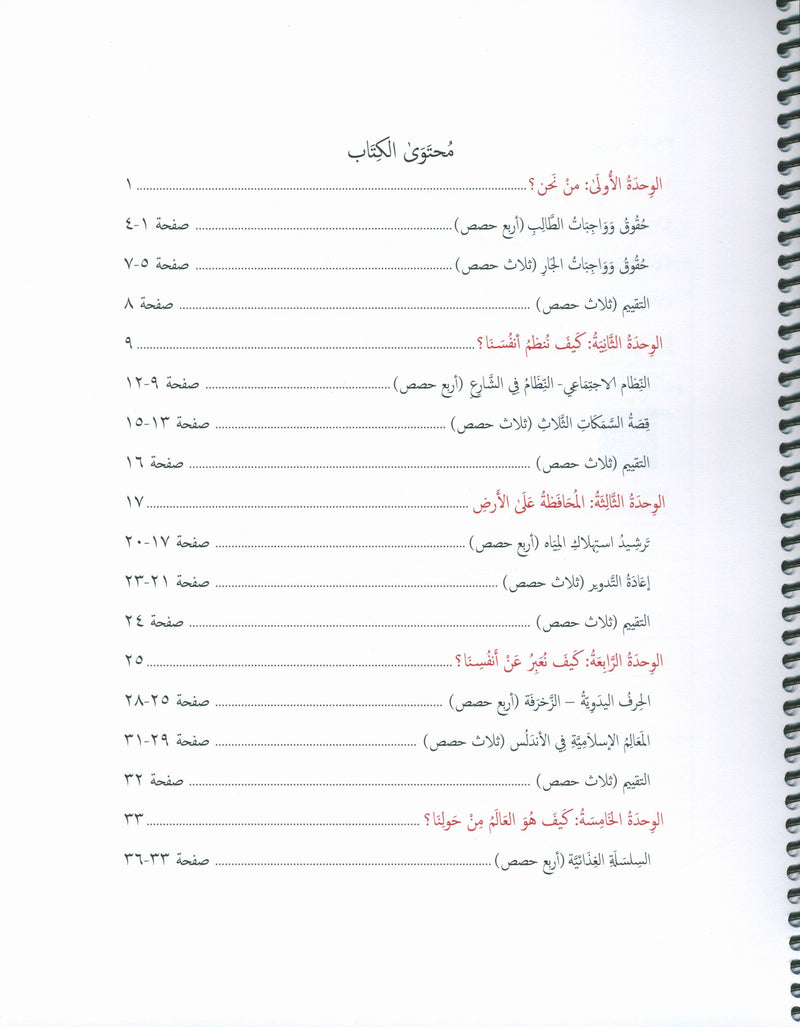 مُحتَوَىٰ الكِتَاب
الوِحدَةُ الأُولَىٰ: منْ نَحن؟ ........ ١
حُقُوقُ وَوَاجِبَاتُ الطَّالِبِ (أربع حصص) ........ صفحة ١-٤
حُقُوقُ وَوَاجِبَاتُ الجَارِ (ثلاث حصص) ........ صفحة ٥-٧
التقييم (ثلاث حصص) ........ صفحة ٨
الوِحدَةُ الثَّانِيَةُ: كَيفَ نُنظمُ أنفُسَنَا؟ ........ ٩
النِّظام الاجتِمَاعي- النِّظَامُ فِي الشَّارِعِ (أربع حصص) ........ صفحة ٩-١٢
قِصَةُ السَّمَكَاتِ الثَّلاثِ (ثلاث حصص) ........ صفحة ١٣-١٥
التقييم (ثلاث حصص) ........ صفحة ١٦
الوِحدَةُ الثَّالِثَةُ: المُحَافَظةُ عَلَىٰ الأَرضِ ........ ١٧
تَرشِيدُ استِهلاكِ المِيَاه (أربع حصص) ........ صفحة ١٧-٢٠
إعَادَةُ التَّدوير (ثلاث حصص) ........ صفحة ٢١-٢٣
التقييم (ثلاث حصص) ........ صفحة ٢٤
الوِحدَةُ الرَّابِعَةُ: كَيفَ نُعَبِرُ عَنْ أَنفُسِنَا؟ ........ ٢٥
الحِرفُ اليدَوِيَةُ – الزَّخرَفَة (أربع حصص) ........ صفحة ٢٥-٢٨
المَعَالِمُ الإسلاَمِيَّةِ فِي الأندَلُس (ثلاث حصص) ........ صفحة ٢٩-٣١
التقييم (ثلاث حصص) ........ صفحة ٣٢
الوِحدَةُ الخَامِسَةُ: كَيفَ هُوَ العَالَمُ مِنْ حَولِنَا؟ ........ ٣٣
السِلسَلَةِ الغِذَائيَّة (أربع حصص) ........ صفحة ٣٣-٣٦